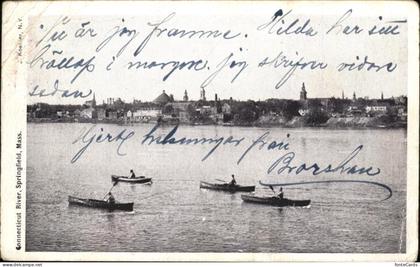 J. Koehler, N.Y.
"Nu är jag framme. Hilda har sitt
bröllop i morgon. Jag skrifver vidare
sedan.
Hjert helsningar från
Brorshan
Connecticut River, Springfield, Mass.